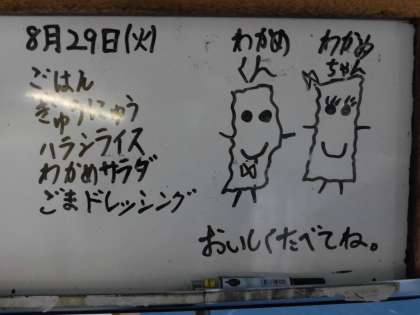 8月29日(火)
ごはん
ぎゅうにゅう
ハラシライス
わかめサラダ
ごまドレッシング
わかめ
くん
わかめ
ちゃん
おいしくたべてね。